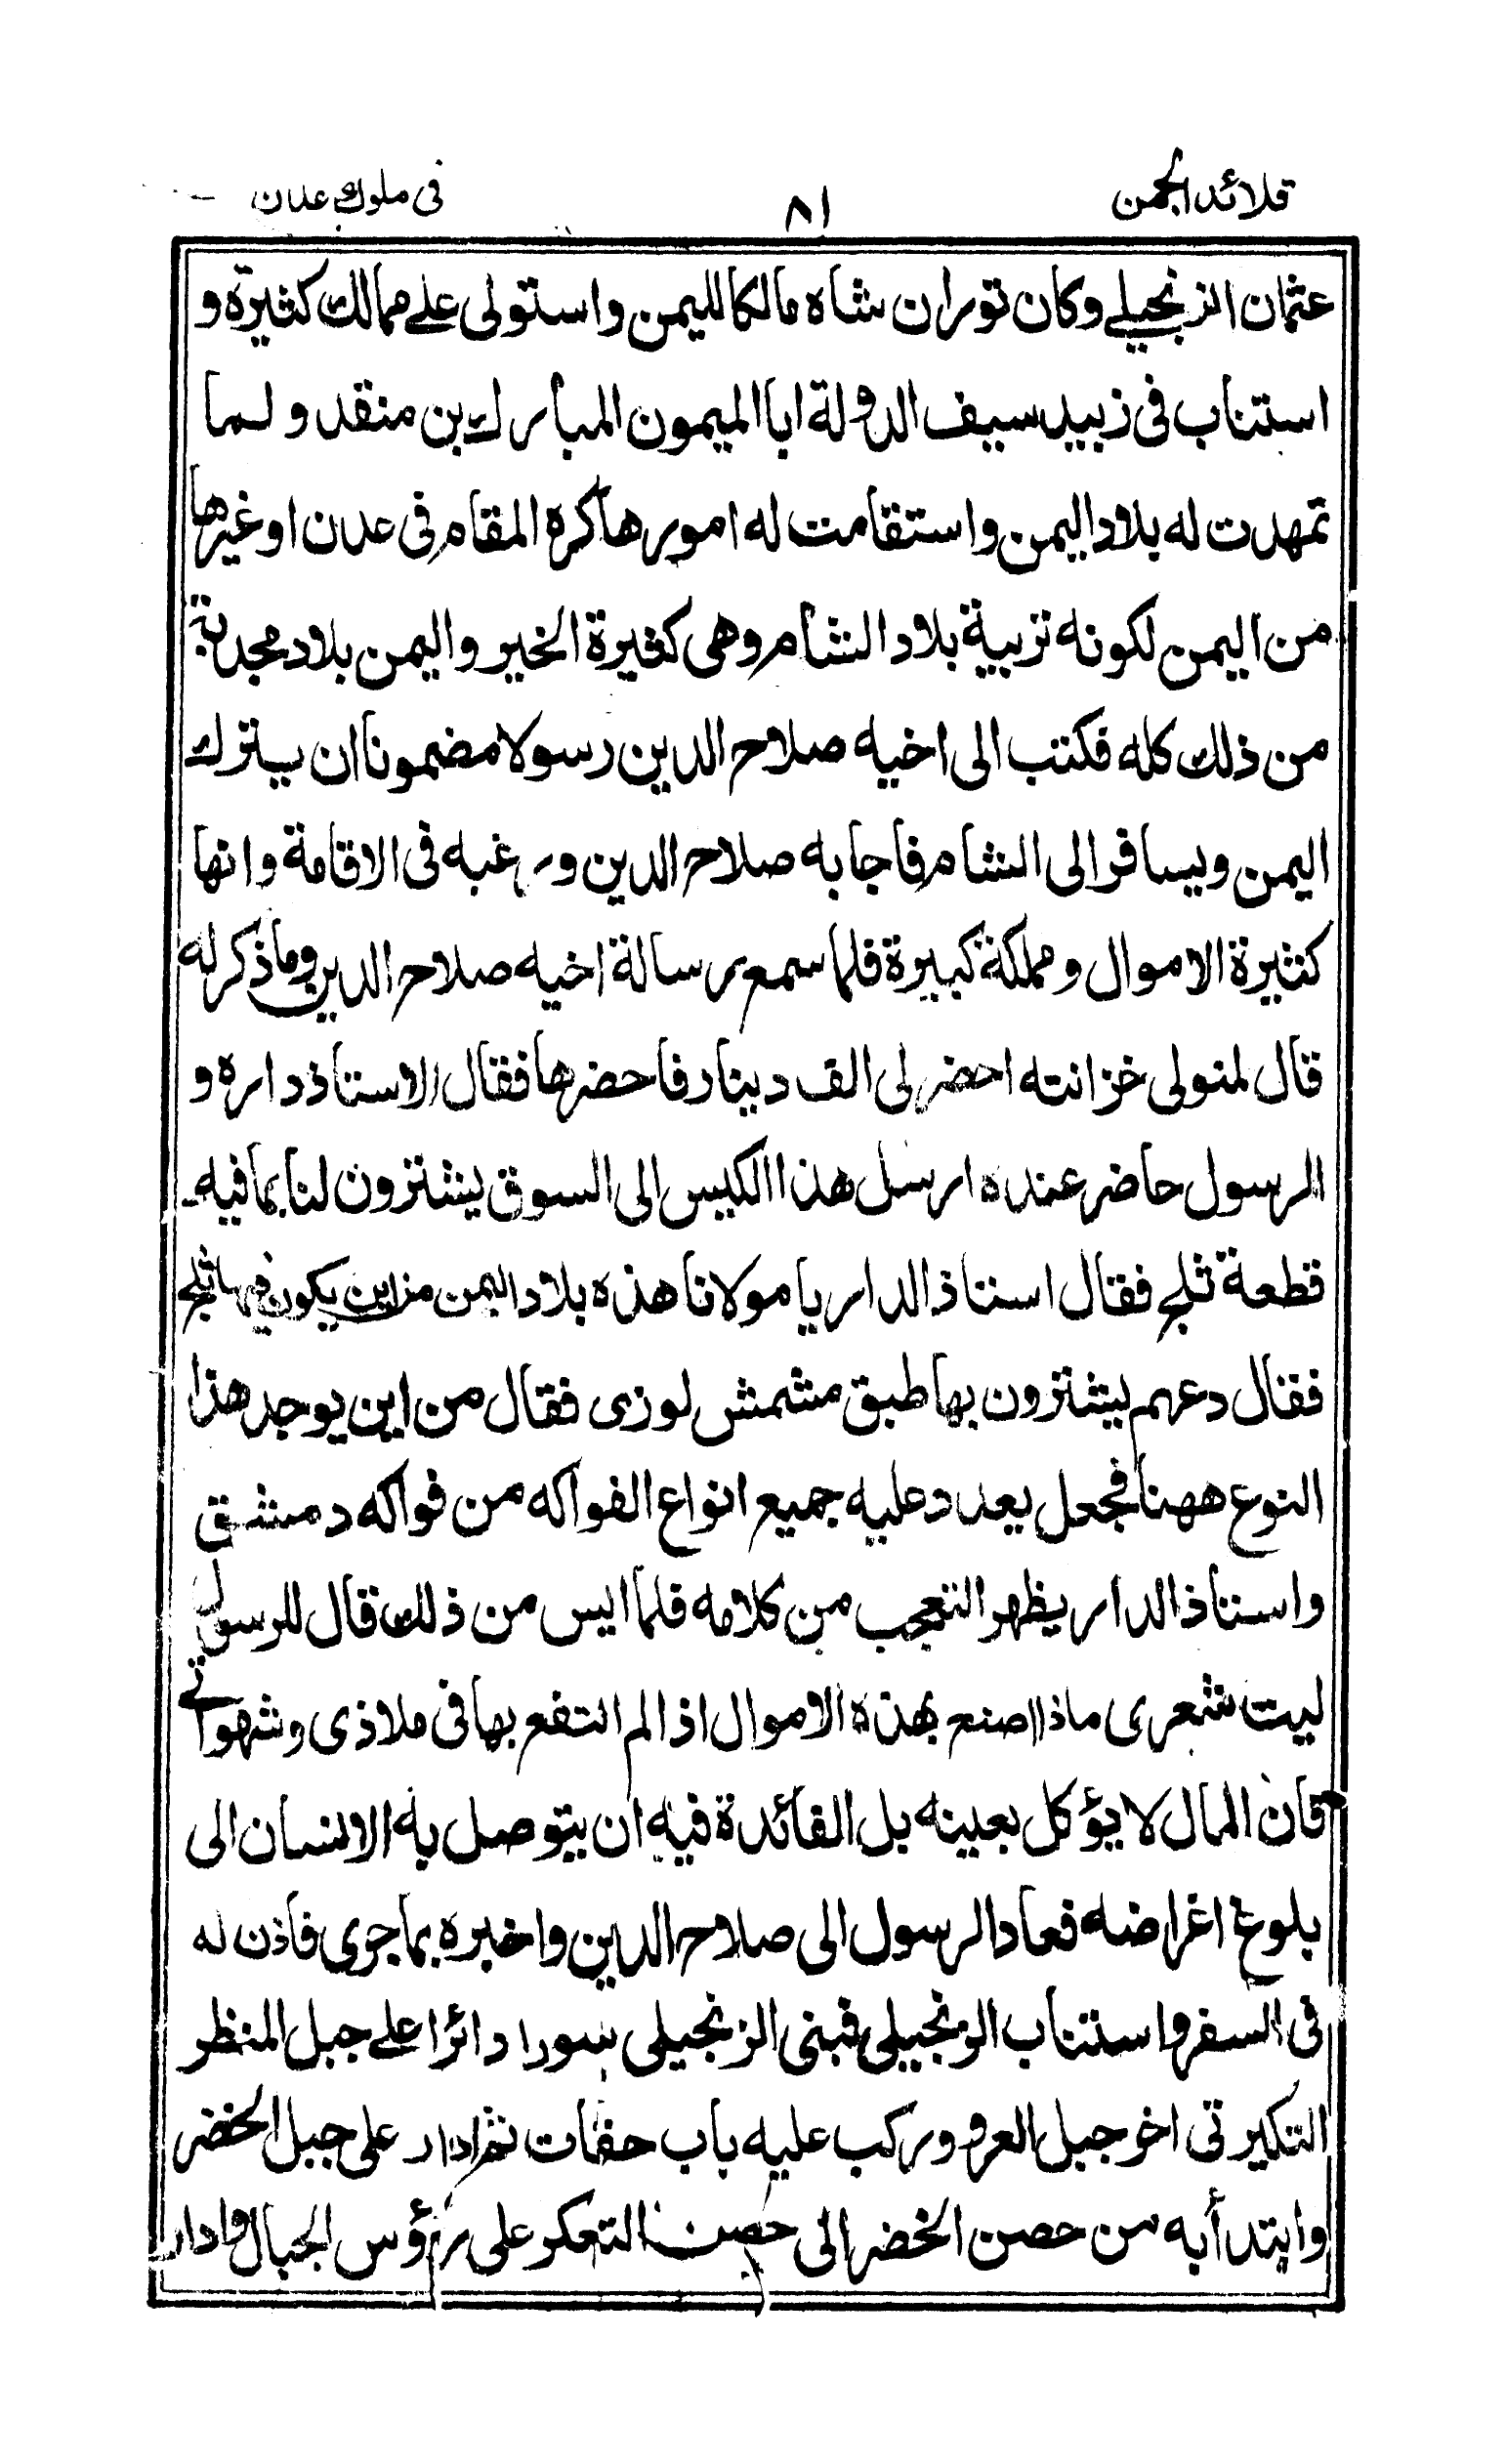 قلائد الجمن ٨١ فى ملوك عدن
عثمان الزنجيلے وكان توران شاه مالكا لليمن واستولى علے ممالك كثيرة و
استناب فى زبيد سيف الدولة ابا الميمون المبارك بن منقد و لـما
تمهدت له بلاد اليمن واستقامت له امورها كره المقام فى عدن او غيرها
من اليمن لكونه تربية بلاد الشام وهى كثيرة الخير واليمن بلاد مجدبة
من ذلك كله فكتب الى اخيه صلاح الدين رسولا مضمونا ان يترك
اليمن ويسافر الى الشام فاجابه صلاح الدين ورغبه فى الاقامة وانها
كثيرة الاموال ومملكة كبيرة فلما سمع رسالة اخيه صلاح الدين وماذكر له
قال لمتولى خزانته احضر لى الف دينار فاحضرها فقال الاستاذ داره و
الرسول حاضر عنده ارسل هذا الكيس الى السوق يشترون لنا بما فيه
قطعة ثلج فقال استاذ الدار يا مولانا هذه بلاد اليمن من اين يكون فيها ثلج
فقال دعهم يشترون بها طبق مشمش لوزى فقال من اين يوجد هذا
النوع ههنا فجعل يعدد عليه جميع انواع الفواكه من فواكه دمشق
واستاذ الدار يظهر التعجب من كلامه فلما ايس من ذلك قال للرسول
ليت شعرى ماذا اصنع بهذه الاموال اذا لم انتفع بها فى ملاذى وشهواتے
فان المال لا يؤكل بعينه بل الفائدة فيه ان يتوصل به الانسان الى
بلوغ اغراضه فعاد الرسول الى صلاح الدين واخبره بما جرى فاذن له
فى السفر واستناب الزنجيلى فبنى الزنجيلى سورا دائرا علے جبل المنظر
التكيرتى اخر جبل العر وركب عليه باب حقات ثم ادار على جبل الخضر
وابتدأ به من حصن الخضر الى حصن التعكر على رؤس الجبال وادار